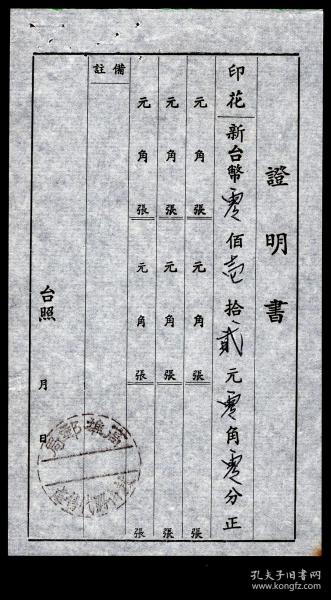 證明書
印花
新台幣零佰壹拾貳元零角零分正
元角張 元角張 張
元角張 元角張 張
元角張 元角張 張
備註
台照
月 日
高雄郵局
孔夫子旧书网